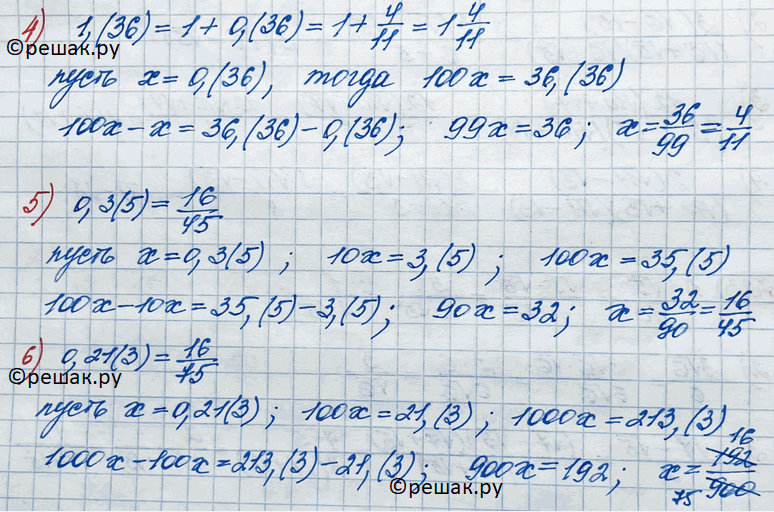 4) 1,(36) = 1 + 0,(36) = 1 + 4/11 = 1 4/11
©решак.ру
пусть x = 0,(36), тогда 100x = 36,(36)
100x - x = 36,(36) - 0,(36); 99x = 36; x = 36/99 = 4/11
5) 0,3(5) = 16/45
пусть x = 0,3(5); 10x = 3,(5); 100x = 35,(5)
100x - 10x = 35,(5) - 3,(5); 90x = 32; x = 32/90 = 16/45
6) 0,21(3) = 16/75
©решак.ру
пусть x = 0,21(3); 100x = 21,(3); 1000x = 213,(3)
1000x - 100x = 213,(3) - 21,(3); 900x = 192; x = 192/900 16 75
©решак.ру